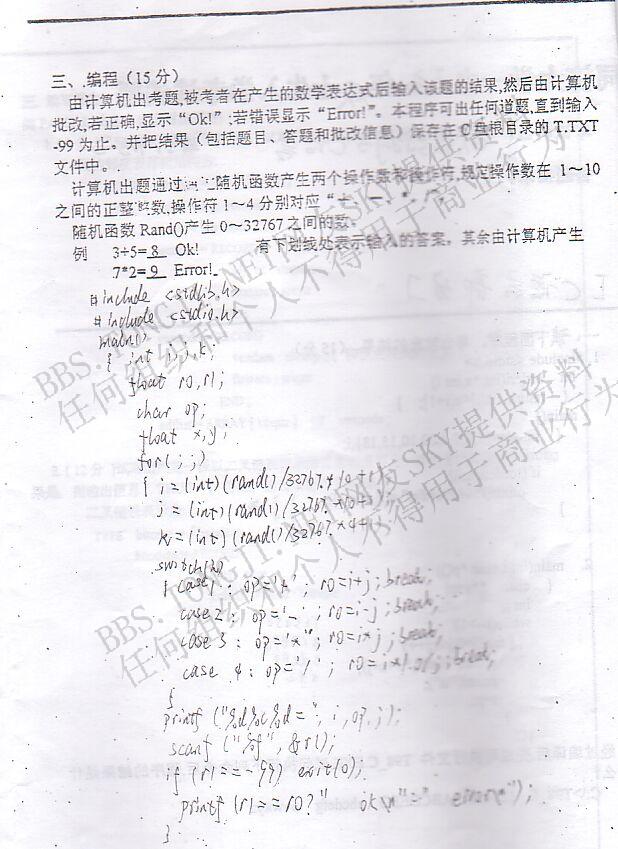 三、编程（15 分）
由计算机出考题,被考者在产生的数学表达式后输入该题的结果,然后由计算机
批改,若正确,显示“Ok!”;若错误显示“Error!”。本程序可出任何道题,直到输入
-99 为止。并把结果（包括题目、答题和批改信息）保存在 C 盘根目录的 T.TXT
文件中。
计算机出题通过 随机函数产生两个操作数和操作符,规定操作数在 1～10
之间的正整数,操作符 1～4 分别对应“
随机函数 Rand()产生 0～32767 之间的数。
例 3+5= 8 Ok! 有下划线处表示输入的答案。其余由计算机产生
7*2= 9 Error!
#include <stdlib.h>
#include <stdio.h>
main()
{ int i,j,k;
float r0,r1;
char op;
float x,y;
for(;;)
{ i=(int)(rand()/32767.*10+1);
j=(int)(rand()/32767.*10+1);
k=(int)(rand()/32767.*4+1);
switch(k)
{ case 1: op='+'; r0=i+j; break;
case 2: op='-'; r0=i-j; break;
case 3: op='*'; r0=i*j; break;
case 4: op='/'; r0=i*1.0/j; break;
}
printf("%d%c%d=", i, op, j);
scanf("%f", &r1);
if (r1==-99) exit(0);
printf(r1==r0?" ok\n":" error\n");
}
BBS.TONGJI.NET网友SKY提供资料
任何组织和个人不得用于商业行为
BBS.TONGJI.NET网友SKY提供资料
任何组织和个人不得用于商业行为